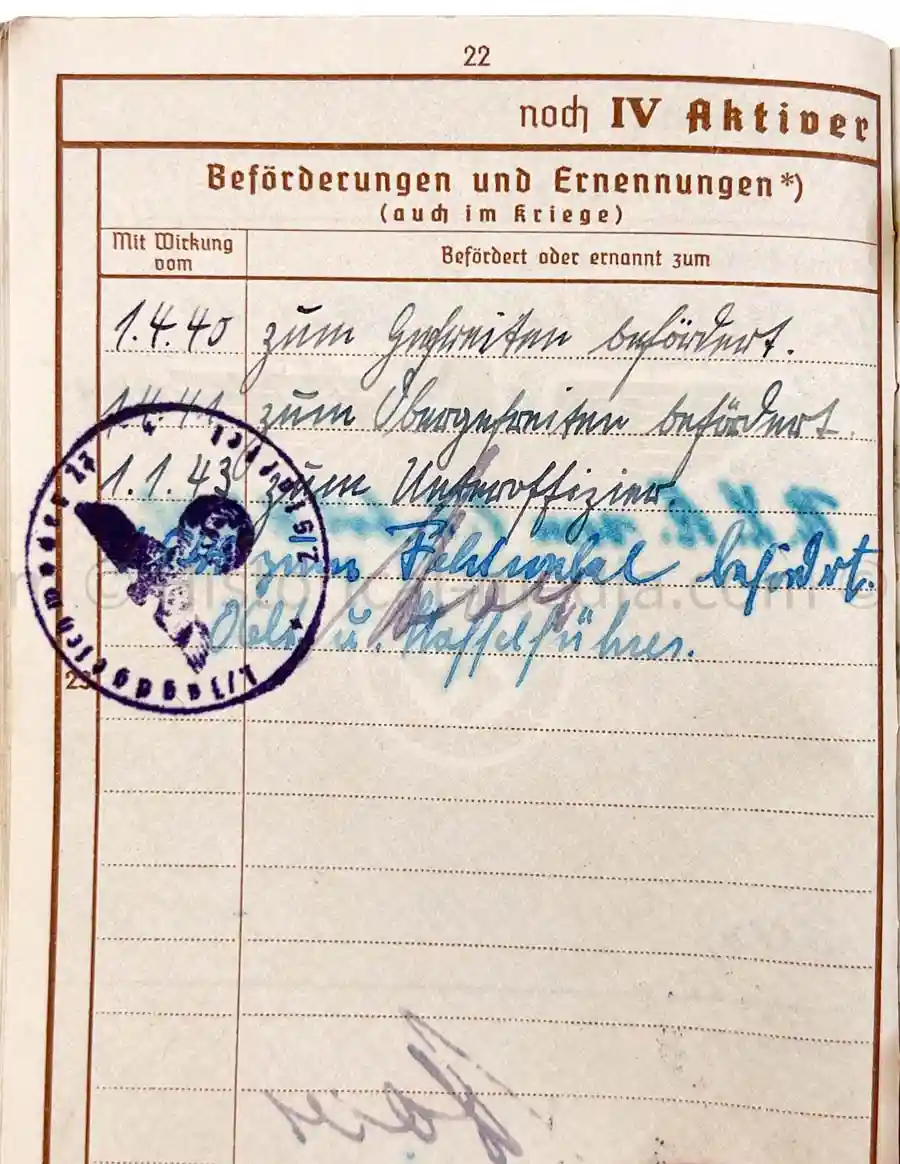 22
noch IV Aktiver
Beförderungen und Ernennungen*)
(auch im Kriege)
Mit Wirkung vom
Befördert oder ernannt zum
1.4.40 zum Gefreiten befördert.
1.4.41 zum Obergefreiten befördert.
1.1.43 zum Unteroffizier.
zum Feldwebel befördert.
Oblt. u. Staffelführer.
23